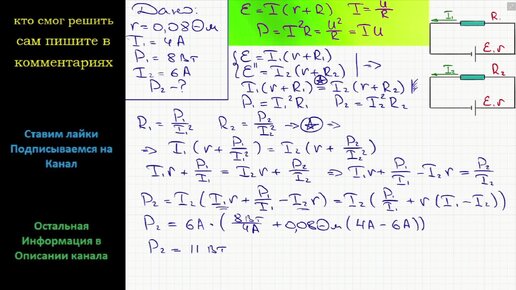 кто смог решить
сам пишите в
комментариях
Ставим лайки
Подписываемся на
Канал
Остальная
Информация в
Описании канала
Дано:
r = 0,08 Ом
I₁ = 4А
P₁ = 8 Вт
I₂ = 6А
P₂ - ?
ℰ = I(r+R) I = U/R
P = I²R = U²/R = IU
I₁ R₁
ℰ, r
I₂ R₂
ℰ, r
{ ℰ = I₁(r+R₁)
ℰ'' = I₂(r+R₂) | →
I₁(r+R₁) = I₂(r+R₂)
P₁ = I₁²R₁ P₂ = I₂²R₂
R₁ = P₁/I₁² R₂ = P₂/I₂² → →
⇒ I₁(r + P₁/I₁²) = I₂(r + P₂/I₂²)
I₁r + P₁/I₁ = I₂r + P₂/I₂ ⇒ I₁r + P₁/I₁ - I₂r = P₂/I₂
P₂ = I₂(I₁r + P₁/I₁ - I₂r) = I₂(P₁/I₁ + r(I₁ - I₂))
P₂ = 6А · (8Вт/4А + 0,08 Ом (4А - 6А))
P₂ = 11 Вт